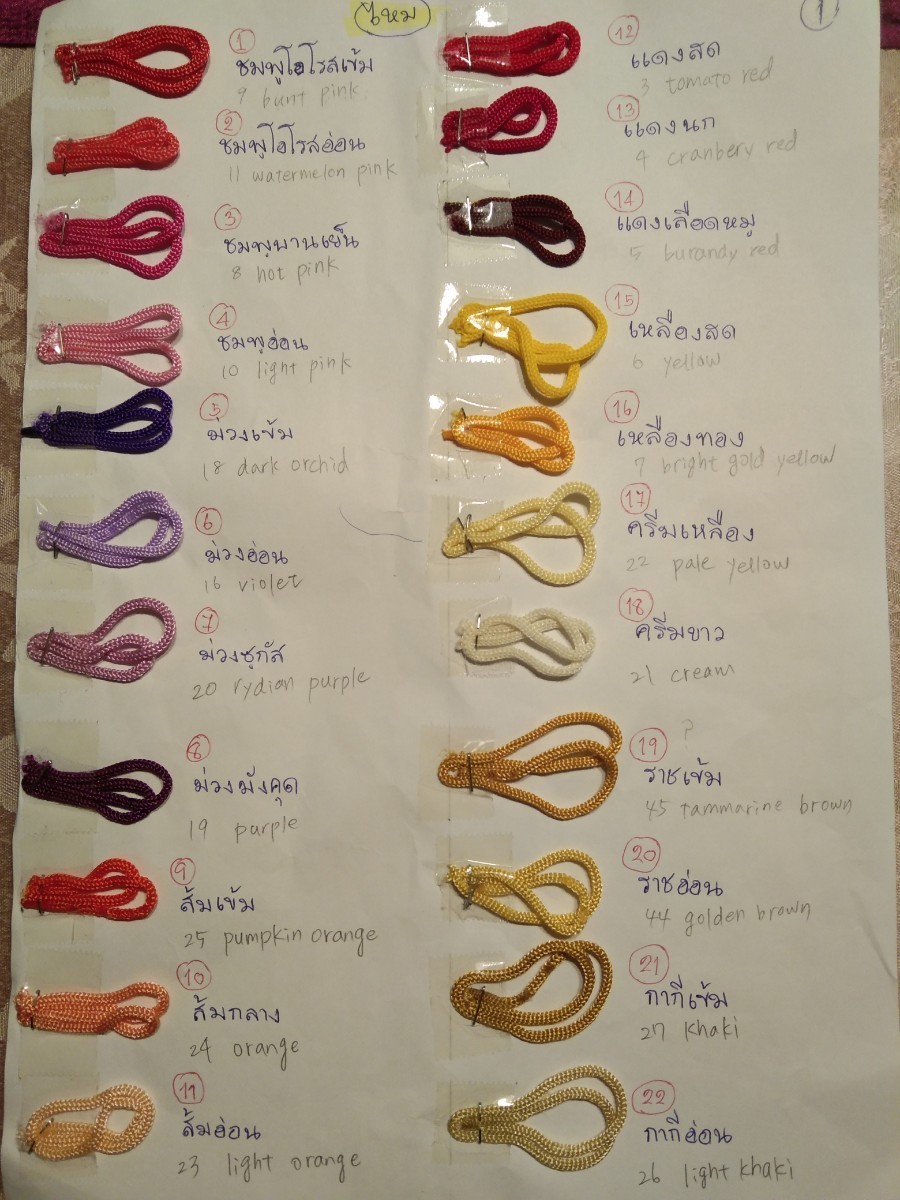 ไหม
1
1
ชมพูโอโรสเข้ม
9 bunt pink
2
ชมพูโอโรสอ่อน
11 watermelon pink
3
ชมพูบานเย็น
8 hot pink
4
ชมพูอ่อน
10 light pink
5
ม่วงเข้ม
18 dark orchid
6
ม่วงอ่อน
16 violet
7
ม่วงซูกัส
20 rydian purple
8
ม่วงมังคุด
19 purple
9
ส้มเข้ม
25 pumpkin orange
10
ส้มกลาง
24 orange
11
ส้มอ่อน
23 light orange
12
แดงสด
3 tomato red
13
แดงนก
4 cranbery red
14
แดงเลือดหมู
5 burandy red
15
เหลืองสด
6 yellow
16
เหลืองทอง
7 bright gold yellow
17
ครีมเหลือง
22 pale yellow
18
ครีมขาว
21 cream
19 ?
ราชเข้ม
45 tammarine brown
20
ราชอ่อน
44 golden brown
21
กากีเข้ม
27 khaki
22
กากีอ่อน
26 light khaki